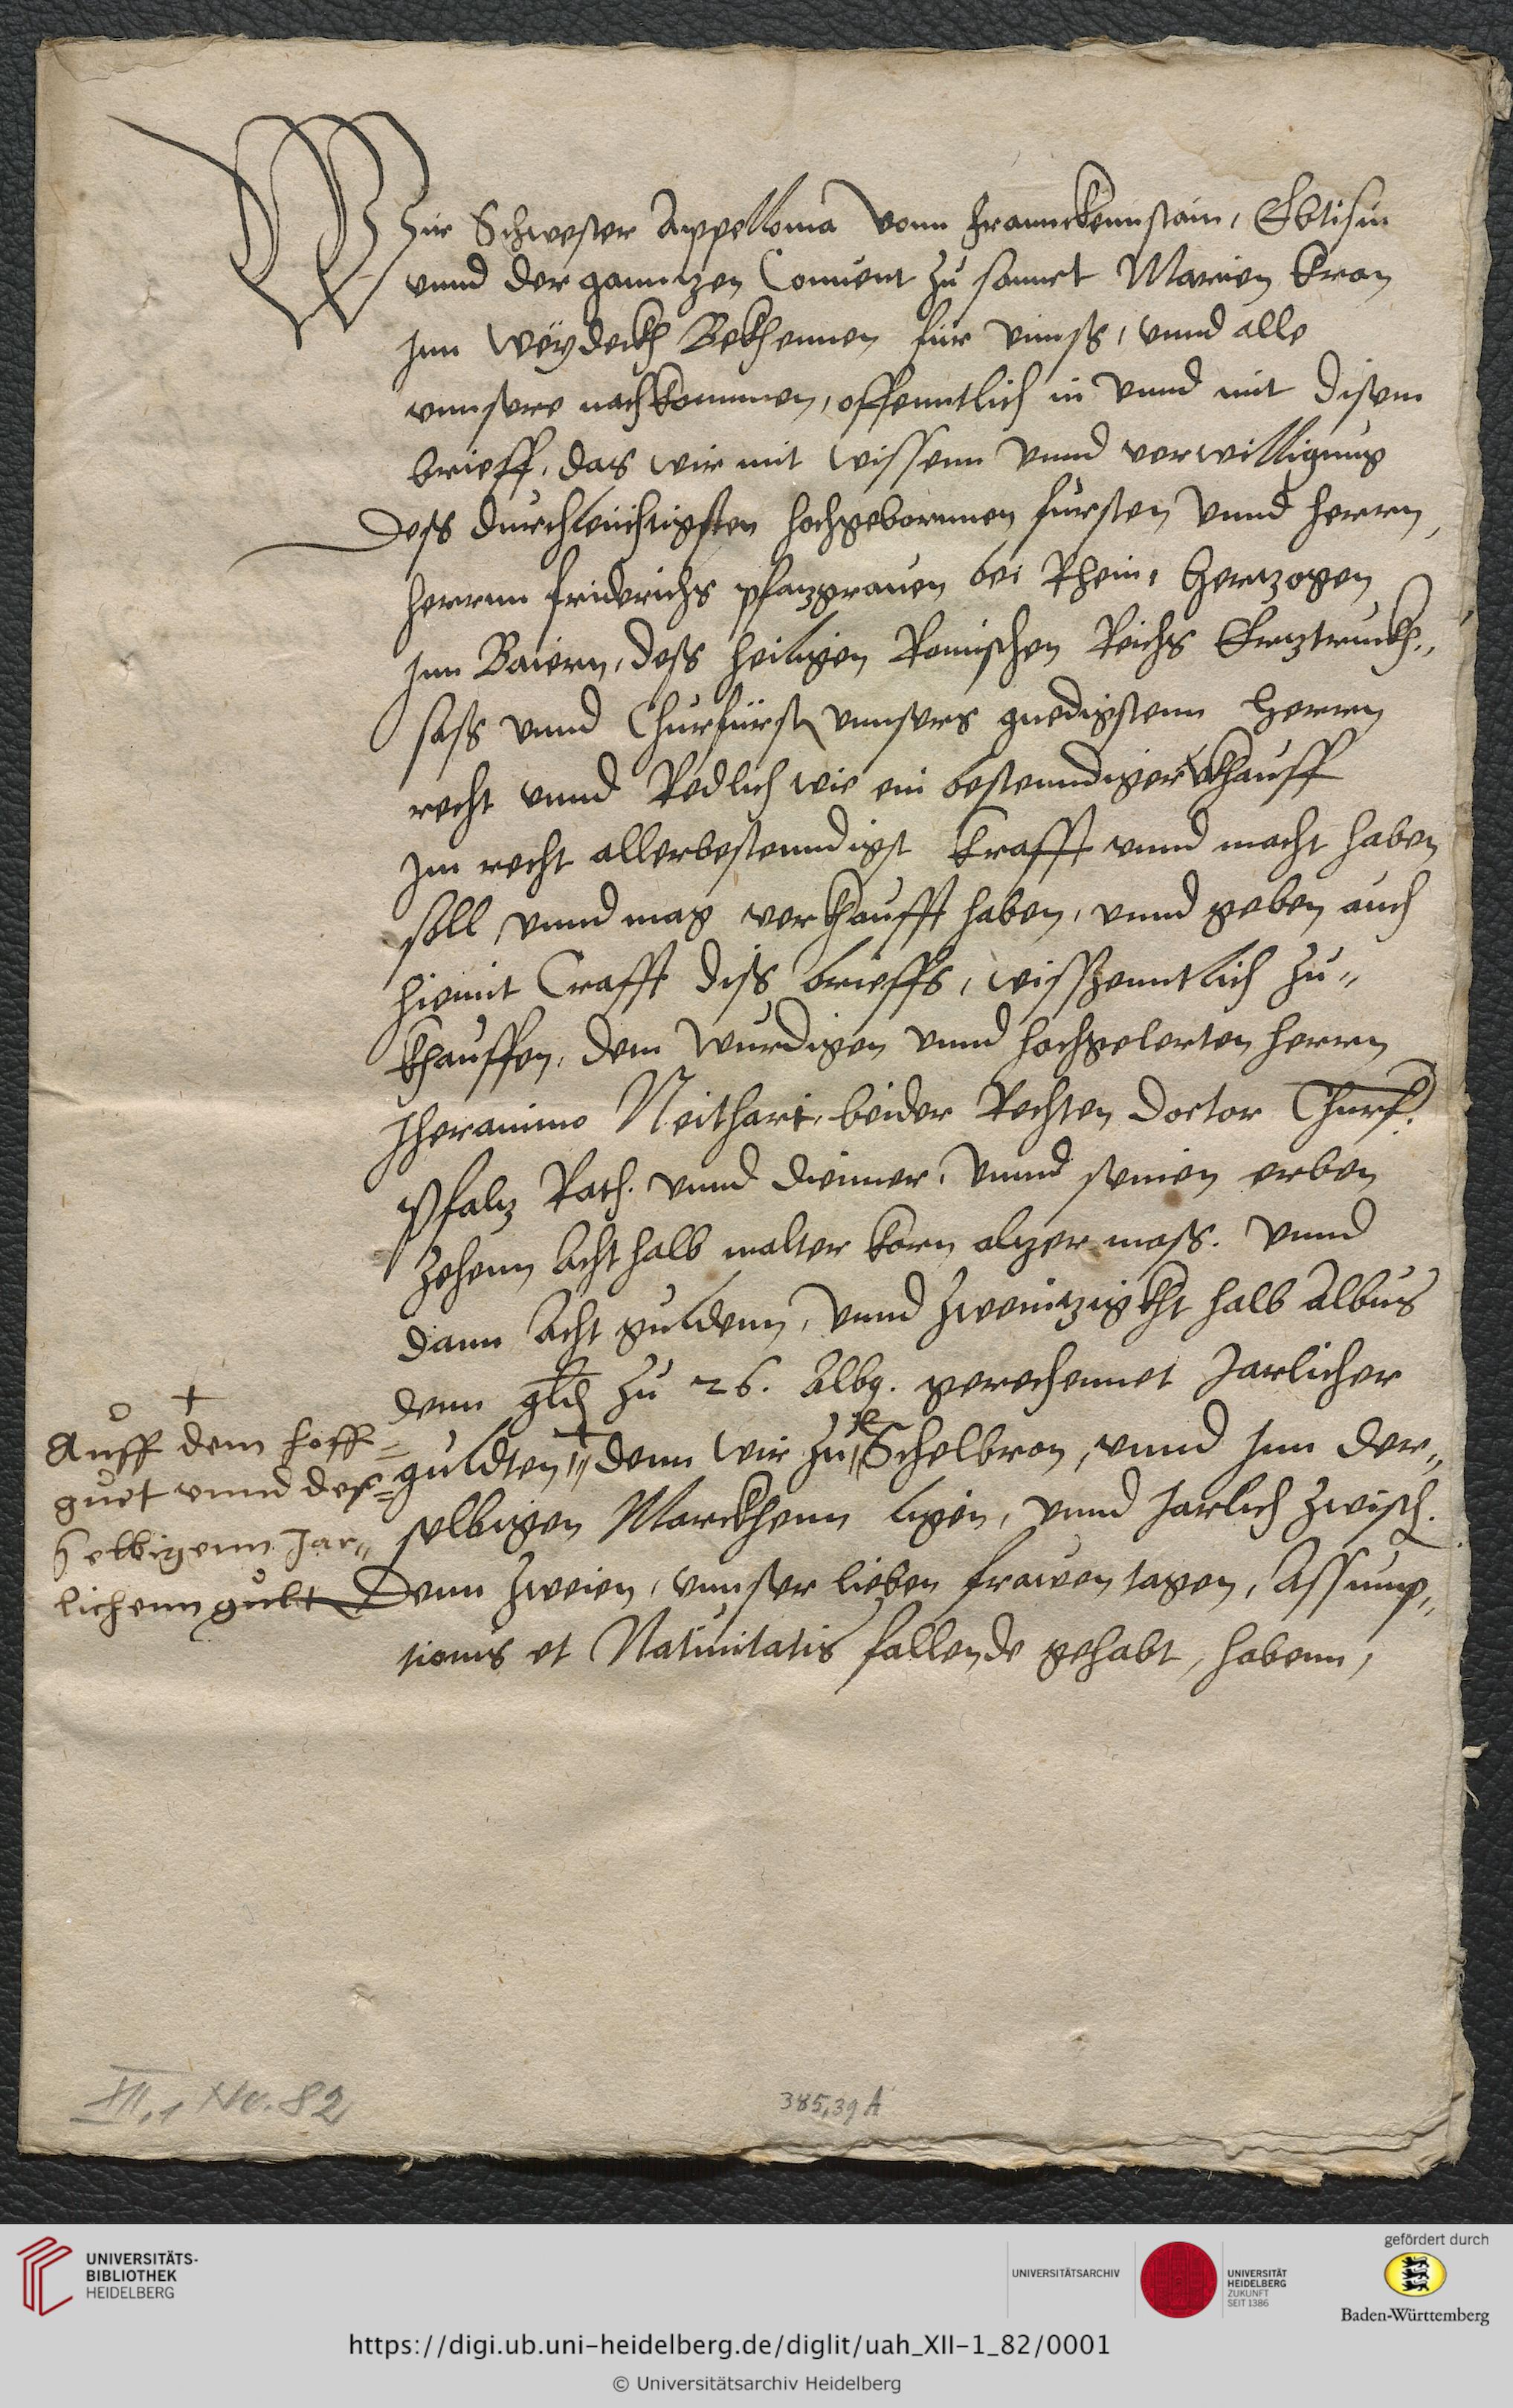 Wir Schwester Appellonia vonn Franckennstain, Ebtisin
vnnd der ganntzen Conuent zu sannct Marien kron
Jnn Weydeckh Bekhennen für vnnß, vnnd alle
vnnsere nachkommen, offenntlich in vnnd mit disem
brieff, das wir mit wissenn vnnd verwilligung
Deß durchleuchtigsten hochgebornnen fursten vnnd herrn,
herrnn friderichs pfaltzgrauen bei Rhein, Hertzogen
Jnn Baiern, deß heiligen Romischen Reichs Ertztruckh„
saß vnnd Churfürst, vnnsers gnedigstenn Herrn
recht vnnd Redlich wie ein bestenndiger khauff
Jm recht allerbestenndigst krafft vnnd macht haben
soll vnnd mag verkhaufft haben, vnnd geben auch
hiemit Crafft diß brieffs, wisszenntlich zu„
khauffen, dem wurdigen vnnd hochgelerten herrn
Jheronimo Neithart, beider Rechten Doctor Churf.
Pfaltz Rath. vnnd diener, vnnd seinen erben
Zehenn Acht halb malter korn altzer maß. vnnd
dann Acht guldenn, vnnd zweintzigkht halb Albus
denn gld zu 26. Alb9. gerechennet Jarlicher
guldten, denn wir zu Schelbron, vnnd Jnn der„
selbigen Marckhenn ligen, vnnd Jarlich zwisch.
Denn zweien, vnnser lieben frawen tagen, Assump„
tionis et Natiuitatis fallende gehabt, habenn,
+
Auff dem hoff=
guet vnnd des=
selbigenn Jar„
lichenn gult
XII,1 No. 82
385,39 A
UNIVERSITÄTS-
BIBLIOTHEK
HEIDELBERG
UNIVERSITÄTSARCHIV
UNIVERSITÄT
HEIDELBERG
ZUKUNFT
SEIT 1386
gefördert durch
Baden-Württemberg
https://digi.ub.uni-heidelberg.de/diglit/uah_XII-1_82/0001
© Universitätsarchiv Heidelberg